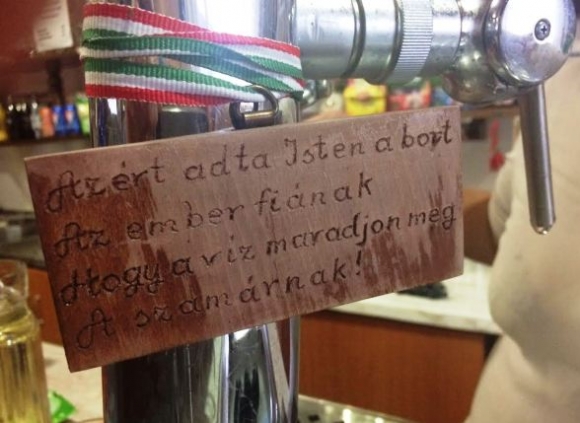 Azért adta Isten a bort
Az ember fiának
Hogy a víz maradjon meg
A szamárnak!